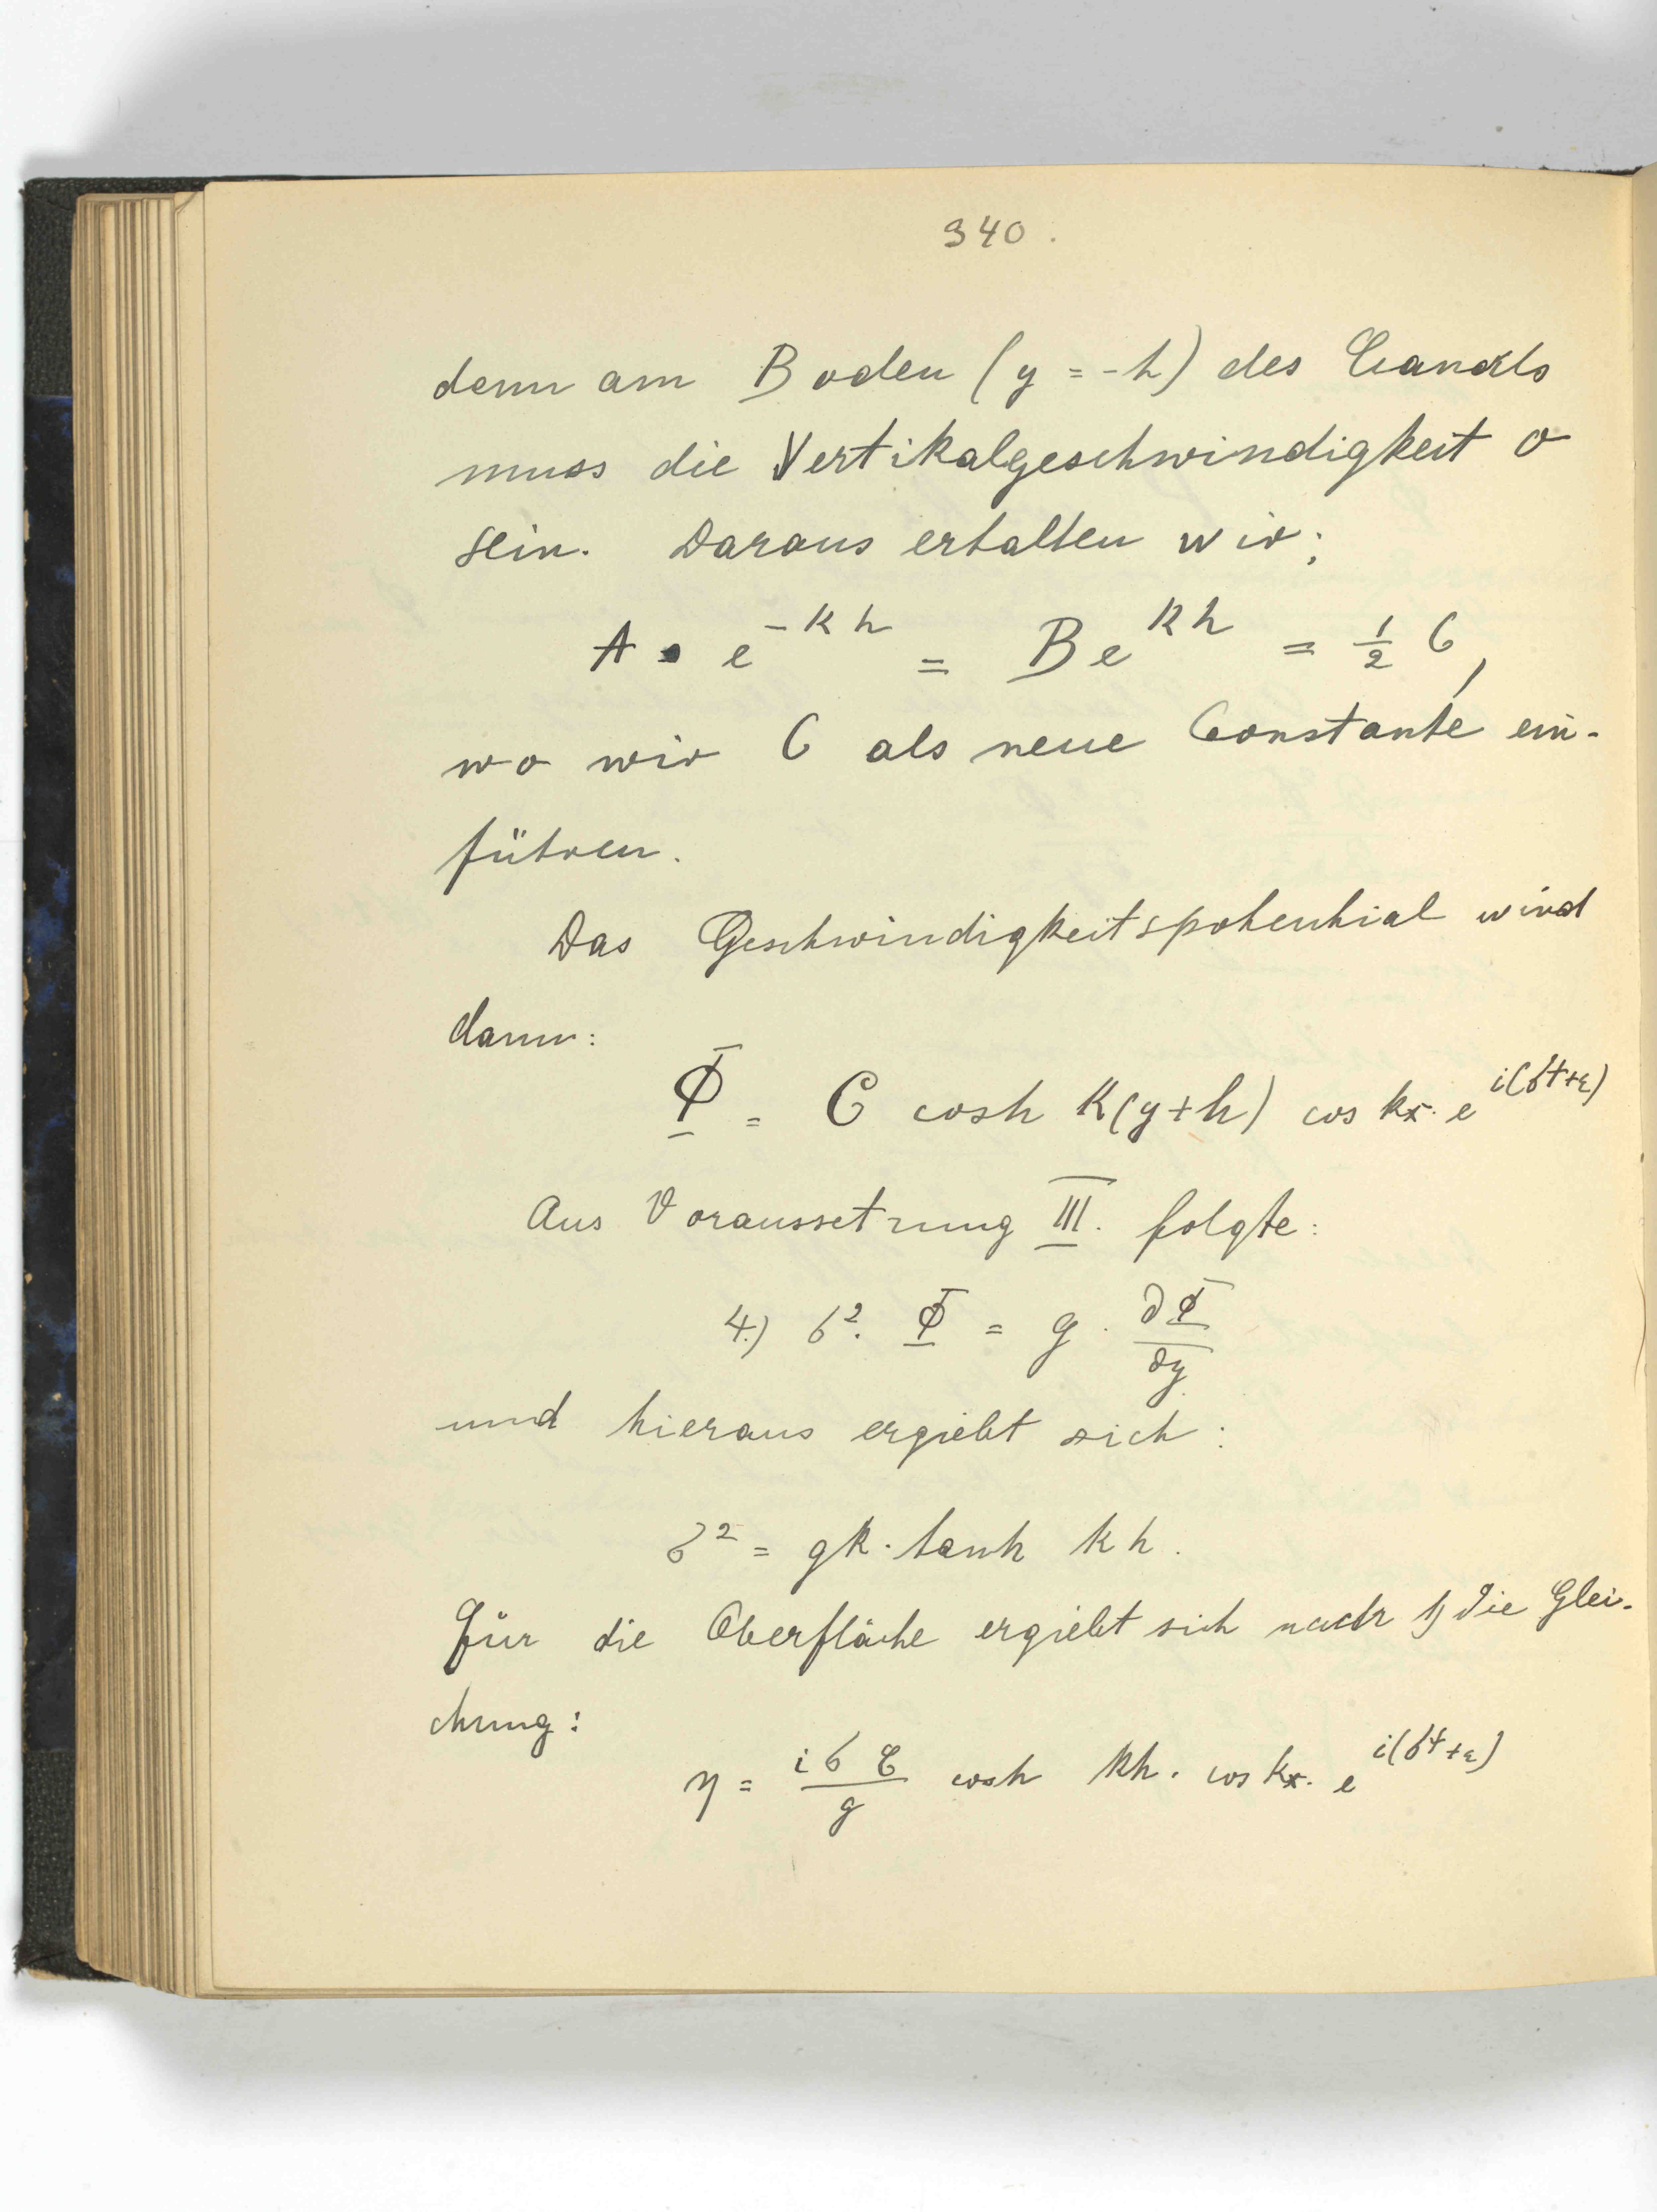 340.
denn am Boden (y = -h) des Canals
muss die Vertikalgeschwindigkeit 0
sein. Daraus erhalten wir;
A · e^{-kh} = B e^{kh} = 1/2 C,
wo wir C als neue Constante ein-
führen.
Das Geschwindigkeitspotential wird
dann:
Φ = C cosh k(y+h) cos kx. e^{i(σt+ε)}
Aus Voraussetzung III. folgte:
4.) σ². Φ = g · ∂Φ/∂y
und hieraus ergiebt sich:
σ² = gk · tanh kh.
Für die Oberfläche ergiebt sich nach 1) die Glei-
chung:
η = iσC/g cosh kh. cos kx. e^{i(σt+ε)}